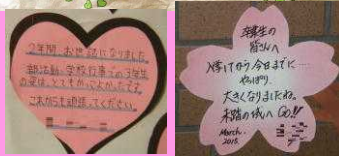 2年間、お世話になりました。
部活動、学校行事での3年生
の姿は、とてもかっこよかったです。
これからも頑張ってください。
卒業生の
皆さんへ
今日まで…
やっぱり
大きくなりましたね。
未踏の域へ GO!!
March.
2015